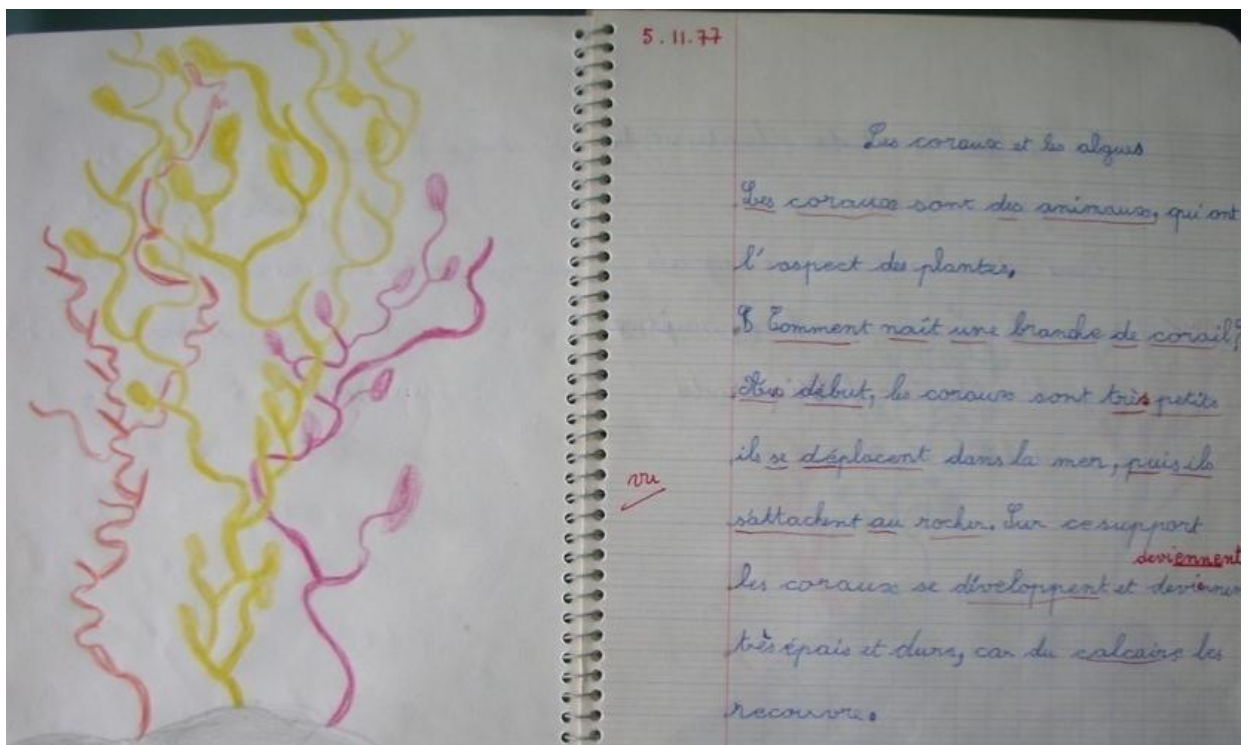 5.11.77
Les coraux et les algues
Les coraux sont des animaux, qui ont
l'aspect des plantes.
Comment naît une branche de corail?
Au début, les coraux sont très petits
ils se déplacent dans la mer, puis ils
s'attachent au rocher. Sur ce support
deviennent
les coraux se développent et deviennen
très épais et durs, car du calcaire les
recouvre.
vu